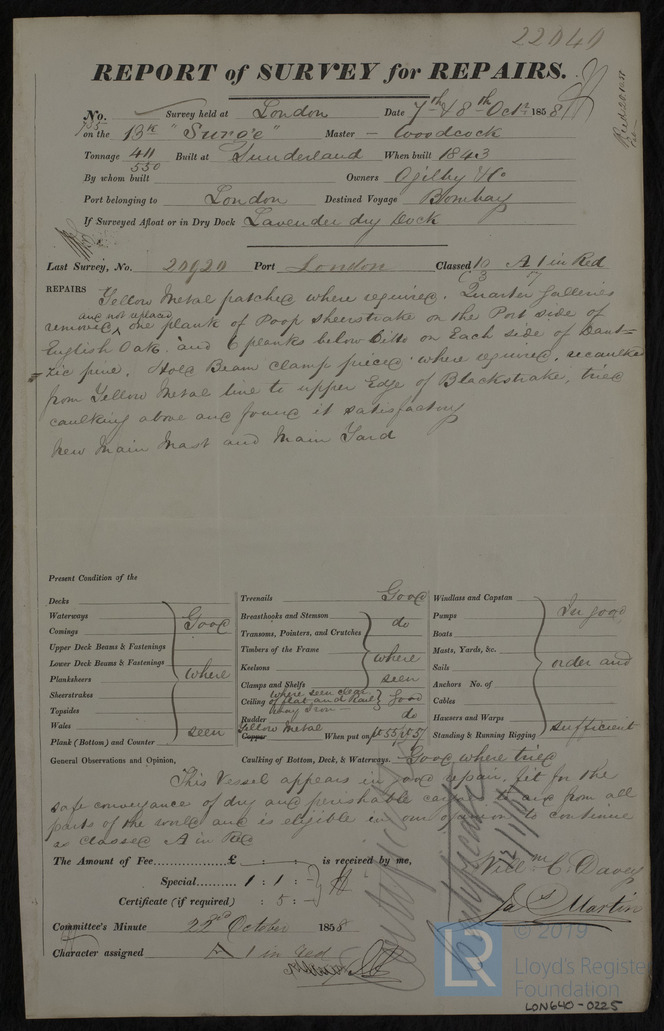 22040
REPORT of SURVEY for REPAIRS.
No. Survey held at London Date 7th & 8th Octr 1858
on the Bk "Surge" Master - Woodcock
Tonnage 411 550 Built at Sunderland When built 1843
By whom built Owners Ogilby & Co
Port belonging to London Destined Voyage Bombay
If Surveyed Afloat or in Dry Dock Lavender dry Dock
Last Survey, No. 20920 Port London Classed A 1 in Red
REPAIRS Yellow Metal patched where required. Quarter Galleries
and not replaced
removed ^ one plank of Poop sheerstrake on the Port side of
English Oak, and 6 planks below Ditto on Each side of Dant=
=zic pine. Hold Beam clamp pieced where required, recaulked
from Yellow Metal line to upper Edge of Blackstrake, tried
caulking above and found it satisfactory
New Main Mast and Main Yard
Present Condition of the
Decks
Waterways
Comings
Upper Deck Beams & Fastenings
Lower Deck Beams & Fastenings
Planksheers
Sheerstrakes
Topsides
Wales
Plank (Bottom) and Counter
Good
where
seen
Treenails Good
Breasthooks and Stemson
Transoms, Pointers, and Crutches
Timbers of the Frame
Keelsons
Clamps and Shelfs
do
where
seen
where seen clear
Ceiling of flat and Hail good
Rudder do
Yellow Metal
Copper When put on
Windlass and Capstan
Pumps
Boats
Masts, Yards, &c.
Sails
Anchors No. of
Cables
Hawsers and Warps
Standing & Running Rigging
In good
order and
sufficient
General Observations and Opinion, Caulking of Bottom, Deck, & Waterways. Good where tried
This Vessel appears in good repair, fit for the
safe conveyance of dry and perishable cargo to and from all
parts of the world and is eligible in our opinion to continue
as classed A in Red
The Amount of Fee £ : : is received by me,
Special 1 : 1 :
Certificate (if required) : 5 :
Willm C. Davey
Jas Martin
Committee's Minute 22nd October 1858
Character assigned A 1 in Red
© 2019
LR
Lloyd's Register
Foundation
LON640-0225